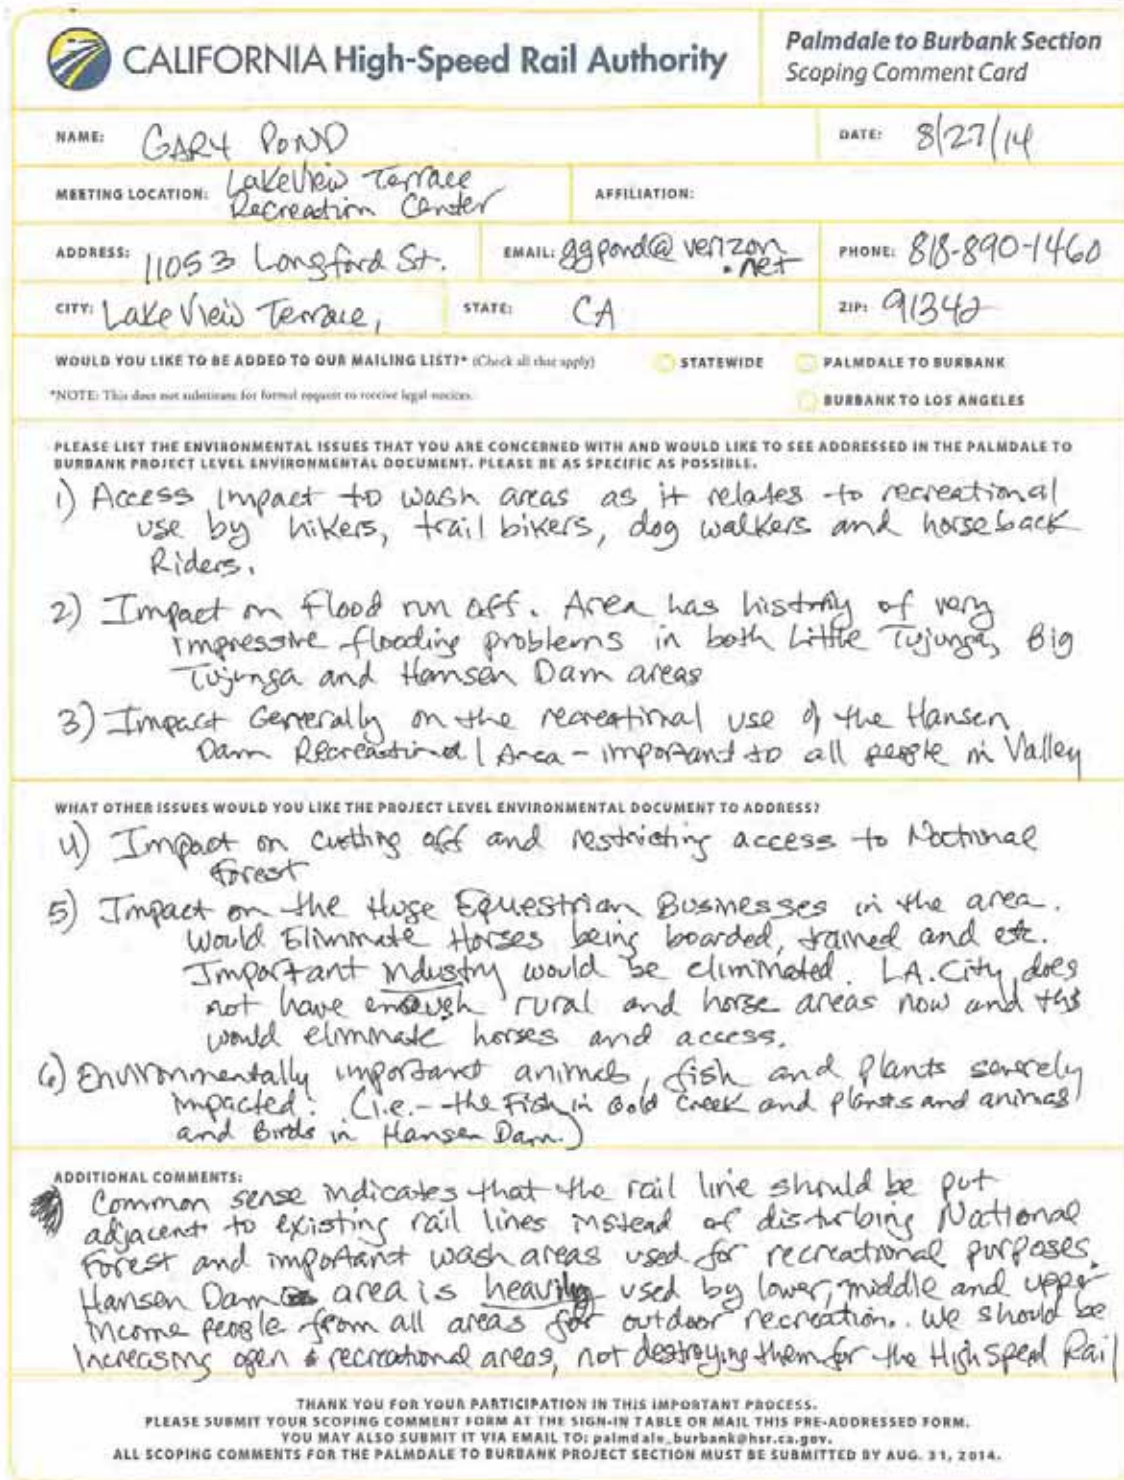 CALIFORNIA High-Speed Rail Authority
Palmdale to Burbank Section
Scoping Comment Card
NAME: GARY POND
DATE: 8/27/14
MEETING LOCATION: Lakeview Terrace
Recreation Center
AFFILIATION:
ADDRESS: 11053 Longford St.
EMAIL: ggpond@verizon
.net
PHONE: 818-890-1460
CITY: Lake View Terrace,
STATE: CA
ZIP: 91342
WOULD YOU LIKE TO BE ADDED TO OUR MAILING LIST?* (Check all that apply)
STATEWIDE
PALMDALE TO BURBANK
*NOTE: This does not substitute for formal request to receive legal notices.
BURBANK TO LOS ANGELES
PLEASE LIST THE ENVIRONMENTAL ISSUES THAT YOU ARE CONCERNED WITH AND WOULD LIKE TO SEE ADDRESSED IN THE PALMDALE TO
BURBANK PROJECT LEVEL ENVIRONMENTAL DOCUMENT. PLEASE BE AS SPECIFIC AS POSSIBLE.
1) Access impact to wash areas as it relates to recreational
use by hikers, trail bikers, dog walkers and horseback
Riders.
2) Impact on flood run off. Area has history of very
impressive flooding problems in both Little Tujunga, Big
Tujunga and Hansen Dam areas
3) Impact Generally on the recreational use of the Hansen
Dam Recreational Area - important to all people in Valley
WHAT OTHER ISSUES WOULD YOU LIKE THE PROJECT LEVEL ENVIRONMENTAL DOCUMENT TO ADDRESS?
4) Impact on cutting off and restricting access to National
Forest
5) Impact on the Huge Equestrian Businesses in the area.
Would Eliminate Horses being boarded, trained and etc.
Important industry would be eliminated. L.A. City does
not have enough rural and horse areas now and this
would eliminate horses and access.
6) Environmentally important animals, fish and plants severely
impacted. (i.e. - the Fish in Gold Creek and plants and animals
and Birds in Hansen Dam.)
ADDITIONAL COMMENTS:
Common sense indicates that the rail line should be put
adjacent to existing rail lines instead of disturbing National
Forest and important wash areas used for recreational purposes.
Hansen Dam area is heavily used by lower, middle and upper
income people from all areas for outdoor recreation. We should be
Increasing open & recreational areas, not destroying them for the High Speed Rail
THANK YOU FOR YOUR PARTICIPATION IN THIS IMPORTANT PROCESS.
PLEASE SUBMIT YOUR SCOPING COMMENT FORM AT THE SIGN-IN TABLE OR MAIL THIS PRE-ADDRESSED FORM.
YOU MAY ALSO SUBMIT IT VIA EMAIL TO: palmdale_burbank@hsr.ca.gov.
ALL SCOPING COMMENTS FOR THE PALMDALE TO BURBANK PROJECT SECTION MUST BE SUBMITTED BY AUG. 31, 2014.